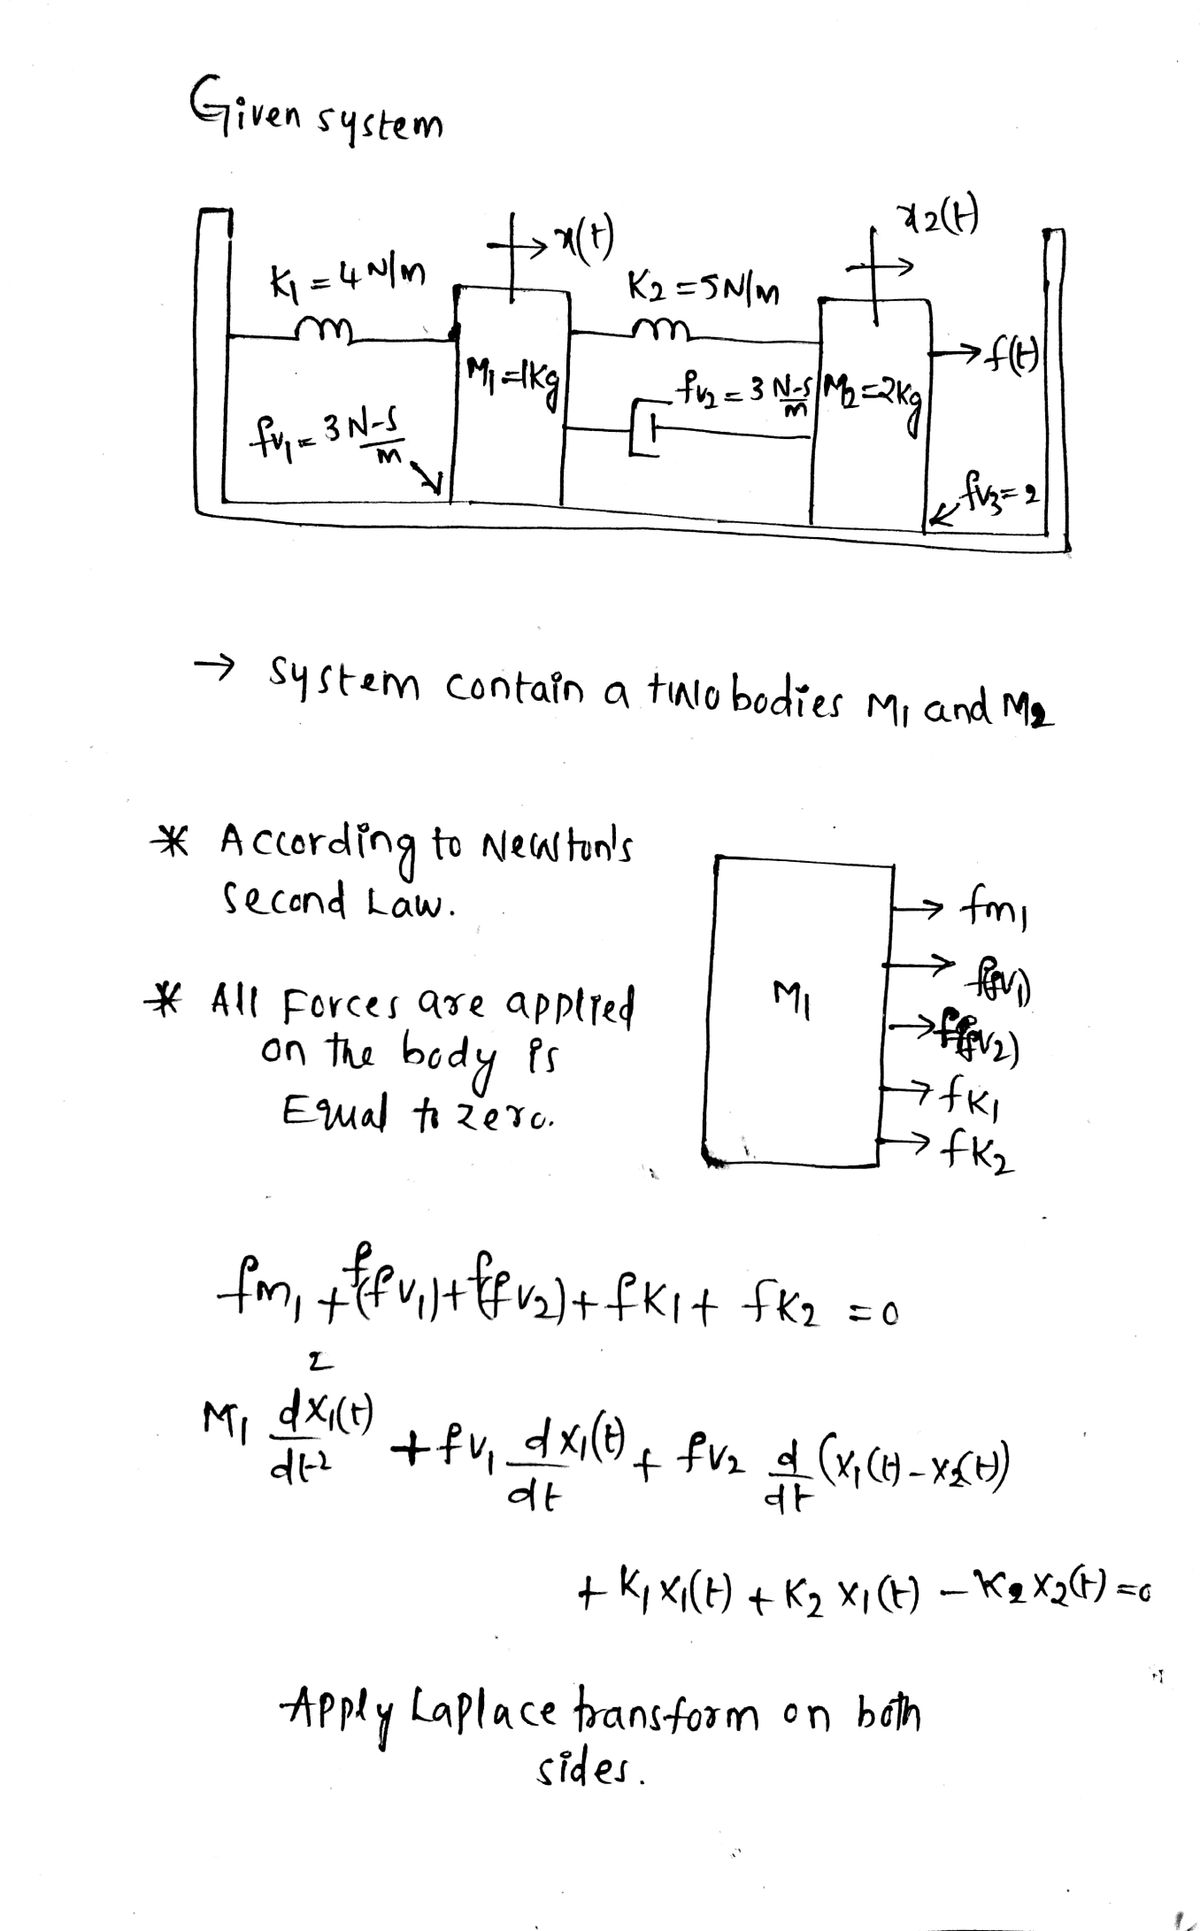 Given system
x2(t)
x(t)
K1 = 4 N/m
K2 = 5N/m
f(t)
M1 = 1kg
fv2 = 3 N-s/m
M2 = 2kg
fv1 = 3 N-s/m
fv3 = 2
→ system contain a two bodies M1 and M2
* According to Newton's
second Law.
fm1
* All Forces are applied
on the body is
Equal to zero.
M1
f(fv1)
f(fv2)
fK1
fK2
fm1 + f(fv1) + f(fv2) + fK1 + fK2 = 0
M1 d²x1(t)/dt² + fv1 dx1(t)/dt + fv2 d/dt (x1(t) - x2(t))
+ K1 x1(t) + K2 x1(t) - K2 x2(t) = 0
Apply Laplace transform on both
sides.